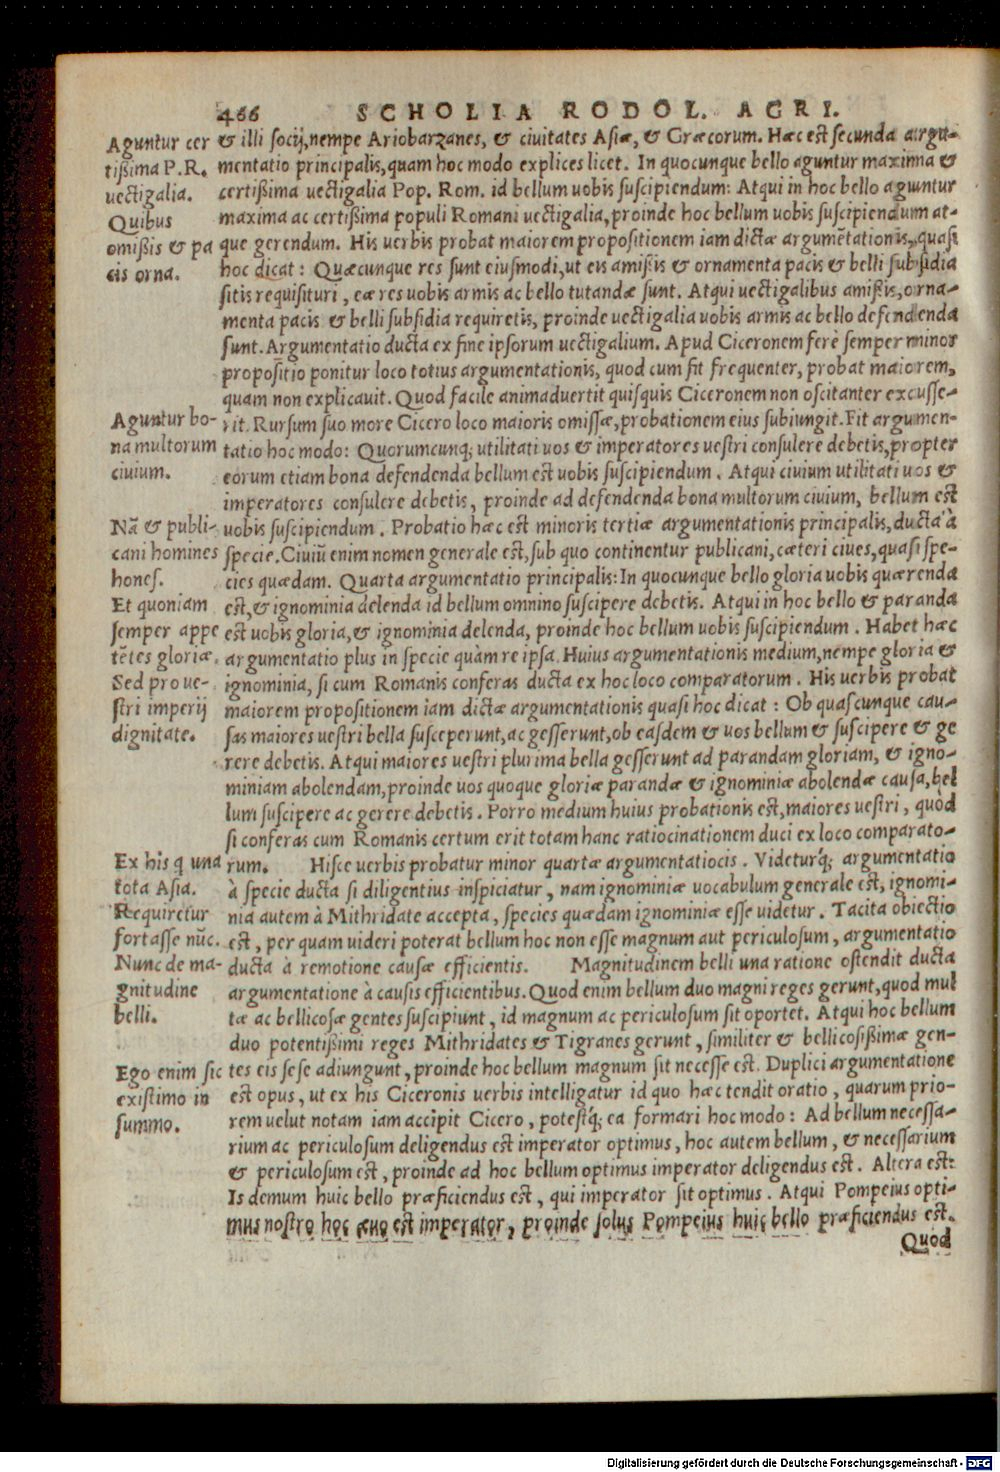 466 SCHOLIA RODOL. AGRI.
Aguntur cer
tißima P.R.
uectigalia.
Quibus
omißis & pa
cis orna.
& illi socij, nempe Ariobarzanes, & ciuitates Asiæ, & Græcorum. Hæc est secunda argu-
mentatio principalis, quam hoc modo explices licet. In quocunque bello aguntur maxima &
certißima uectigalia Pop. Rom. id bellum uobis suscipiendum: Atqui in hoc bello aguntur
maxima ac certißima populi Romani uectigalia, proinde hoc bellum uobis suscipiendum at-
que gerendum. His uerbis probat maiorem propositionem iam dictæ argumẽtationis, quasi
hoc dicat: Quæcunque res sunt eiusmodi, ut eis amißis & ornamenta pacis & belli subsidia
sitis requisituri, eæ res uobis armis ac bello tutandæ sunt. Atqui uectigalibus amißis, orna-
menta pacis & belli subsidia requiretis, proinde uectigalia uobis armis ac bello defendenda
sunt. Argumentatio ducta ex fine ipsorum uectigalium. Apud Ciceronem ferè semper minor
propositio ponitur loco totius argumentationis, quod cum fit frequenter, probat maiorem,
quam non explicauit. Quod facile animaduertit quisquis Ciceronem non oscitanter excusse-
Aguntur bo-
na multorum
ciuium.
rit. Rursum suo more Cicero loco maioris omissæ, probationem eius subiungit. Fit argumen-
tatio hoc modo: Quorumcunq; utilitati uos & imperatores uestri consulere debetis, propter
eorum etiam bona defendenda bellum est uobis suscipiendum. Atqui ciuium utilitati uos &
imperatores consulere debetis, proinde ad defendenda bona multorum ciuium, bellum est
Nã & publi-
cani homines
hones.
uobis suscipiendum. Probatio hæc est minoris tertiæ argumentationis principalis, ducta à
specie. Ciuiũ enim nomen generale est, sub quo continentur publicani, cæteri ciues, quasi spe-
cies quædam. Quarta argumentatio principalis: In quocunque bello gloria uobis quærenda
Et quoniam
semper appe
tẽtes gloriæ.
Sed pro ue-
stri imperij
dignitate.
est, & ignominia delenda id bellum omnino suscipere debetis. Atqui in hoc bello & paranda
est uobis gloria, & ignominia delenda, proinde hoc bellum uobis suscipiendum. Habet hæc
argumentatio plus in specie quàm re ipsa. Huius argumentationis medium, nempe gloria &
ignominia, si cum Romanis conferas ducta ex hoc loco comparatorum. His uerbis probat
maiorem propositionem iam dictæ argumentationis quasi hoc dicat: Ob quascunque cau-
sas maiores uestri bella susceperunt, ac gesserunt, ob easdem & uos bellum & suscipere & ge
rere debetis. Atqui maiores uestri plurima bella gesserunt ad parandam gloriam, & igno-
miniam abolendam, proinde uos quoque gloriæ parandæ & ignominiæ abolendæ causa, bel
lum suscipere ac gerere debetis. Porro medium huius probationis est, maiores uestri, quòd
si conferas cum Romanis certum erit totam hanc ratiocinationem duci ex loco comparato-
Ex his q̃ una
tota Asia.
Requiretur
fortasse nũc.
rum. Hisce uerbis probatur minor quartæ argumentatiocis. Videturq́; argumentatio
à specie ducta si diligentius inspiciatur, nam ignominiæ uocabulum generale est, ignomi-
nia autem à Mithridate accepta, species quædam ignominiæ esse uidetur. Tacita obiectio
est, per quam uideri poterat bellum hoc non esse magnum aut periculosum, argumentatio
Nunc de ma-
gnitudine
belli.
ducta à remotione causæ efficientis. Magnitudinem belli una ratione ostendit ducta
argumentatione à causis efficientibus. Quod enim bellum duo magni reges gerunt, quod mul
tæ ac bellicosæ gentes suscipiunt, id magnum ac periculosum sit oportet. Atqui hoc bellum
duo potentißimi reges Mithridates & Tigranes gerunt, similiter & bellicosißimæ gen-
Ego enim sic
existimo in
summo.
tes eis sese adiungunt, proinde hoc bellum magnum sit necesse est. Duplici argumentatione
est opus, ut ex his Ciceronis uerbis intelligatur id quo hæc tendit oratio, quarum prio-
rem uelut notam iam accipit Cicero, potestq́; ea formari hoc modo: Ad bellum necessa-
rium ac periculosum deligendus est imperator optimus, hoc autem bellum, & necessarium
& periculosum est, proinde ad hoc bellum optimus imperator deligendus est. Altera est:
Is demum huic bello præficiendus est, qui imperator sit optimus. Atqui Pompeius opti-
mus nostro hoc æuo est imperator, proinde solus Pompeius huic bello præficiendus est.
Quod
Digitalisierung gefördert durch die Deutsche Forschungsgemeinschaft - DFG